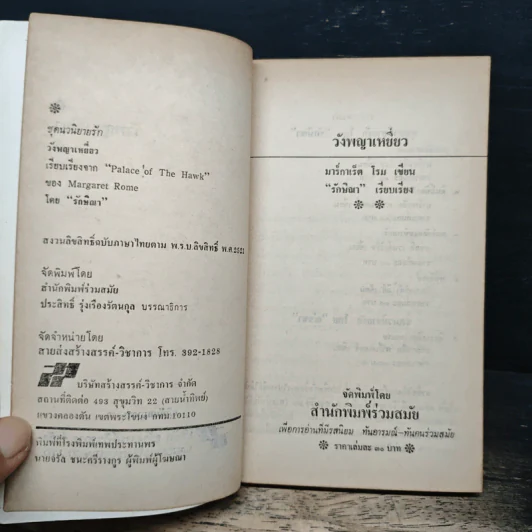 ชุดนวนิยายรัก
วังพญาเหยี่ยว
เรียบเรียงจาก "Palace of The Hawk"
ของ Margaret Rome
โดย "รักษิณา"
สงวนลิขสิทธิ์ฉบับภาษาไทยตาม พ.ร.บ.ลิขสิทธิ์ พ.ศ.2521
จัดพิมพ์โดย
สำนักพิมพ์ร่วมสมัย
ประสิทธิ์ รุ่งเรืองรัตนกุล บรรณาธิการ
จัดจำหน่ายโดย
สายส่งสร้างสรรค์-วิชาการ โทร. 392-1828
บริษัทสร้างสรรค์-วิชาการ จำกัด
สถานที่ติดต่อ 493 สุขุมวิท 22 (สายน้ำทิพย์)
แขวงคลองตัน เขตพระโขนง กทม.10110
พิมพ์ที่โรงพิมพ์เทพประทานพร
นายจรัล ชนะศรีรางกูร ผู้พิมพ์ผู้โฆษณา
วังพญาเหยี่ยว
มาร์กาเร็ต โรม เขียน
"รักษิณา" เรียบเรียง
จัดพิมพ์โดย
สำนักพิมพ์ร่วมสมัย
เพื่อการอ่านที่มีรสนิยม ทันอารมณ์-ทันคนร่วมสมัย
ราคาเล่มละ ๓๐ บาท